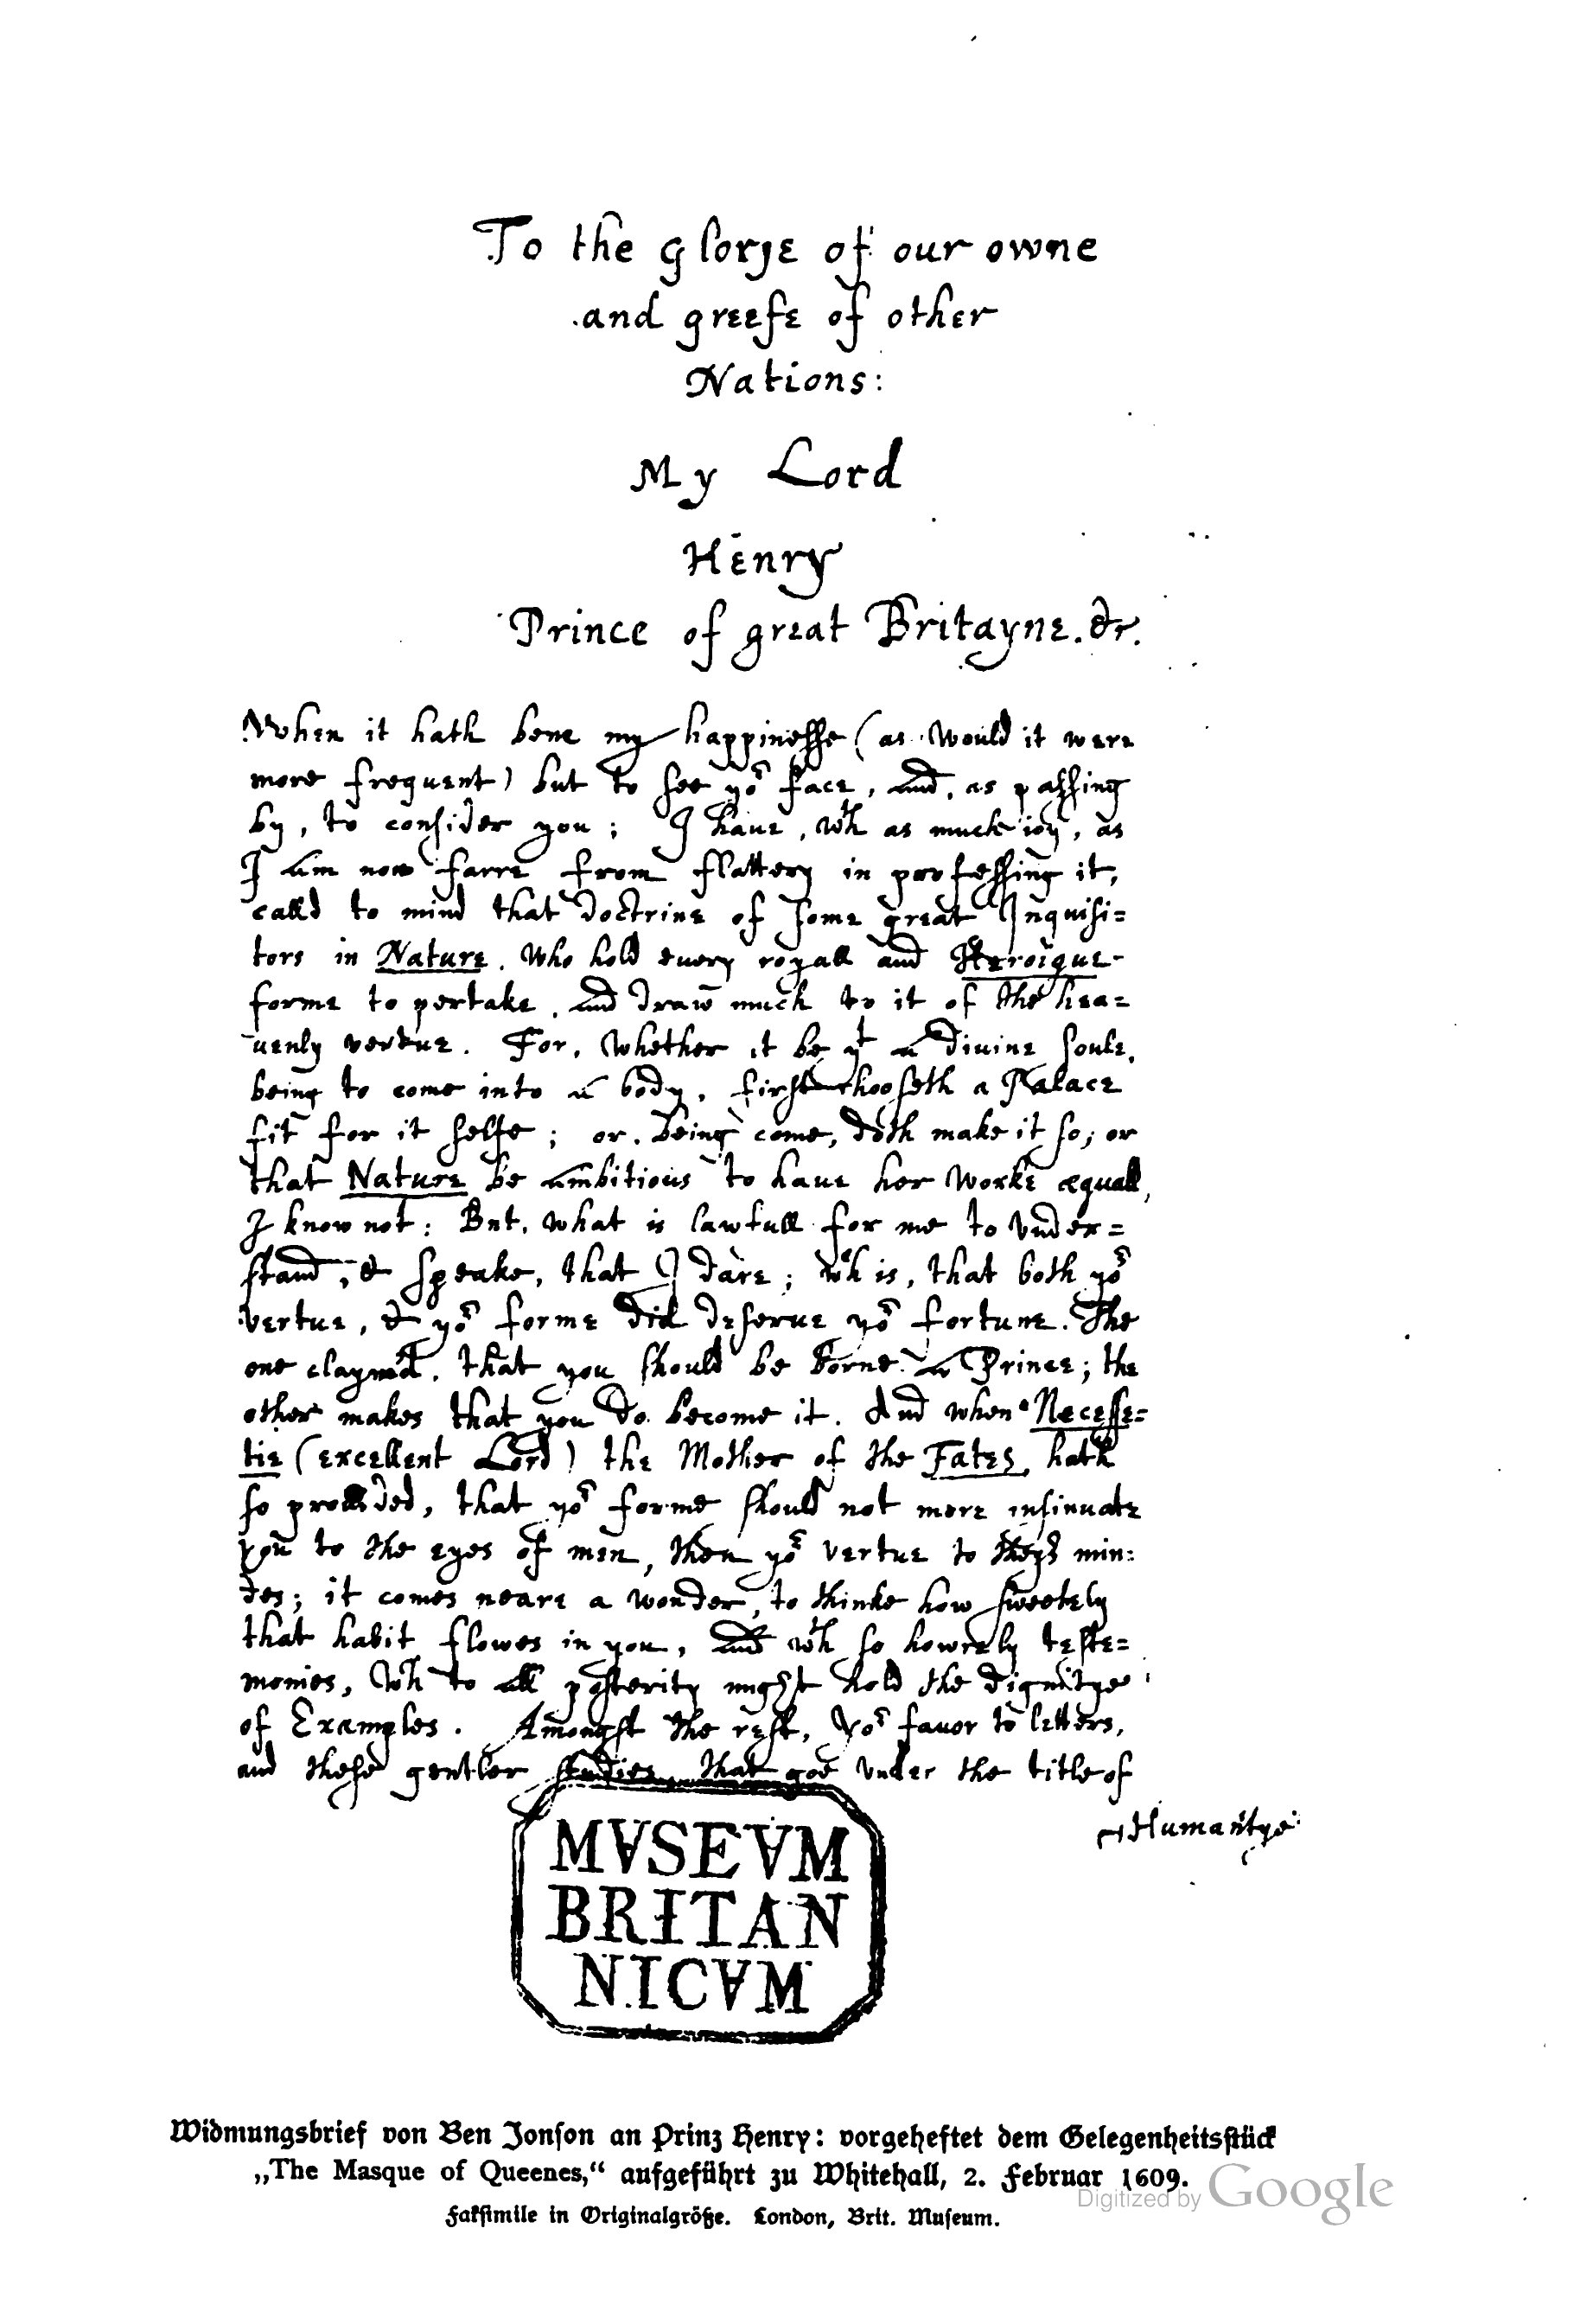 To the glorye of our owne
and greefe of other
Nations:
My Lord
Henry
Prince of great Britayne. &c.
When it hath bene my happinesse (as would it were
more frequent) but to see yoʳ face, and, as passing
by, to consider you; I haue, wᵗʰ as much ioy, as
I am now farre from flattery in professing it,
calld to mind that doctrine of some great Inquisi=
tors in Nature, who hold euery royall and Heroique
forme to pertake, and draw much to it of the hea=
uenly vertue. For, whether it be yᵗ a diuine soule,
being to come into a body, first chooseth a Palace
fit for it selfe; or, being come, doth make it so; or
that Nature be ambitious to haue her worke æquall,
I know not: But, what is lawfull for me to vnder=
stand, & speake, that I dare; wᶜʰ is, that both yoʳ
vertue, & yoʳ forme did deserue yoʳ fortune. The
one claymd, that you should be borne a Prince; the
other makes that you do become it. And when Necessi=
tie (excellent Lord) the Mother of the Fates, hath
so prouided, that yoʳ forme should not more insinuate
you to the eyes of men, then yoʳ vertue to theyʳ min:
des; it comes neare a wonder, to thinke how sweetely
that habit flowes in you, and wᵗʰ so howrely teste=
monies, wᶜʰ to all posterity might hold the dignitye
of Examples. Amongst the rest, yoʳ fauor to letters,
and these gentler studies, that goe vnder the title of
Humanitye
MVSEVM
BRITAN
NICVM
Widmungsbrief von Ben Jonson an Prinz Henry: vorgeheftet dem Gelegenheitsstück
„The Masque of Queenes,“ aufgeführt zu Whitehall, 2. Februar 1609.
Faksimile in Originalgröße. London, Brit. Museum.
Digitized by Google